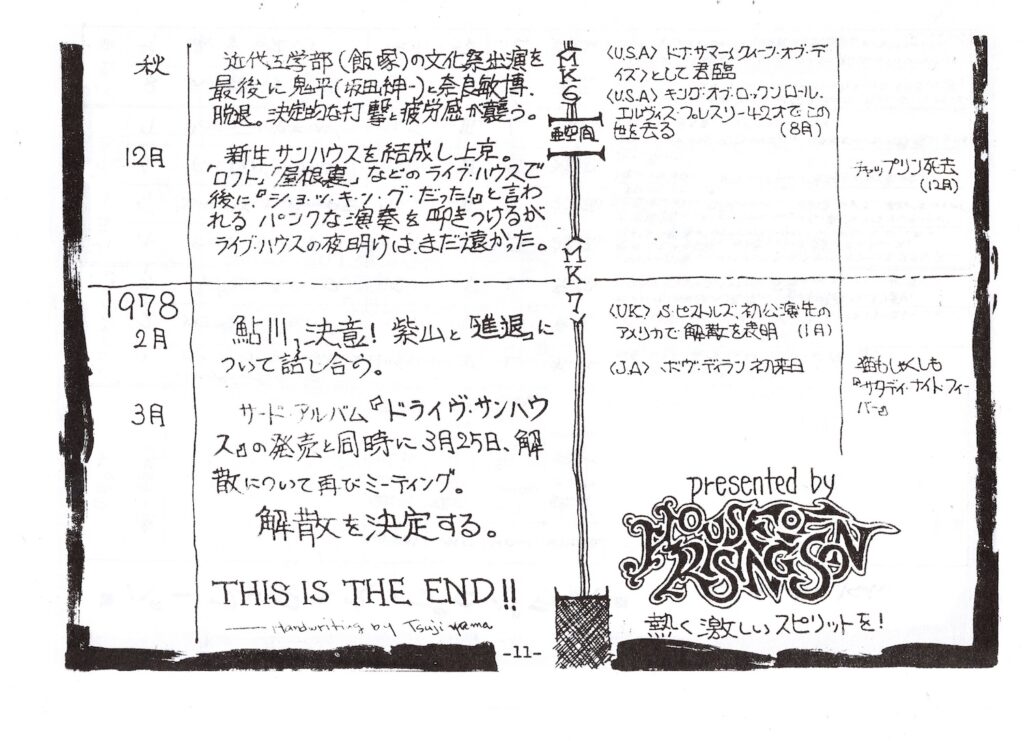 秋
近代工学部(飯塚)の文化祭出演を
最後に鬼平(坂田紳一)と奈良敏博、
脱退。決定的な打撃と疲労感が襲う。
12月
新生サンハウスを結成し上京。
「ロフト」「屋根裏」などのライブ・ハウスで
後に『シ・ョ・ッ・キ・ン・グ・だった!』と言わ
れる パンクな演奏を叩きつけるが
ライブ・ハウスの夜明けは、まだ遠かった。
1978
2月
鮎川、決意! 柴山と「進退」に
ついて話し合う。
3月
サード・アルバム『ドライヴ・サンハウ
ス』の発売と同時に3月25日、解
散について再びミーティング。
解散を決定する。
THIS IS THE END!!
Handwriting by Tsujiyama
MK6
亜空間
MK7
〈U.S.A〉 ドナ・サマー(クィーン・オブ・デ
ィスコ)として君臨
〈U.S.A〉 キング・オブ・ロックンロール、
エルヴィス・プレスリー42才でこの
世を去る (8月)
チャップリン死去
(12月)
〈UK〉 S・ピストルズ、初公演先の
アメリカで解散を表明 (1月)
〈J.A〉 ボヴ・ディラン初来日
猫もしゃくしも
『サタデイ・ナイト・フィー
バー』
presented by
HOUSE OF
RISING SON
熱く激しいスピリットを!
-11-